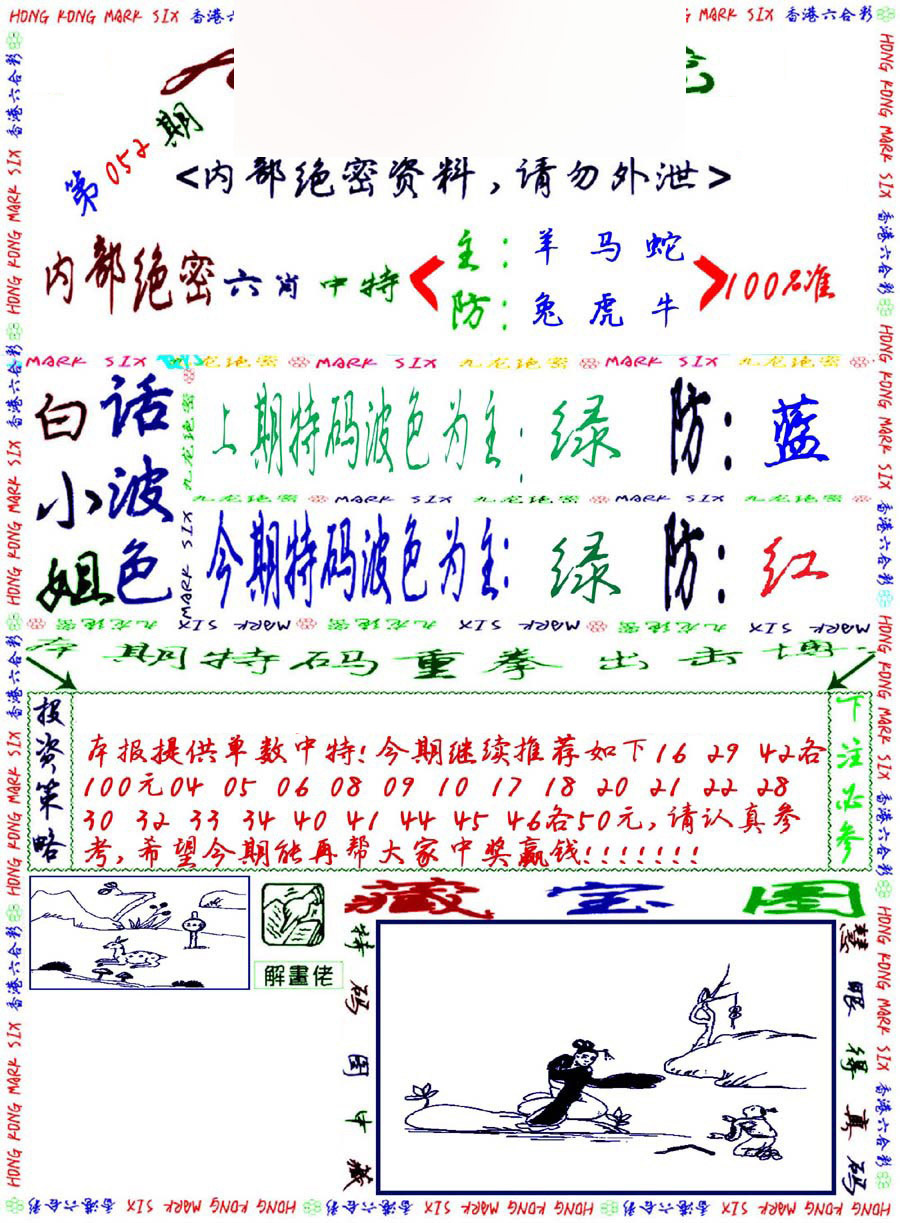 HONG KONG MARK SIX 香港六合彩
第052期
<内部绝密资料，请勿外泄>
内部绝密六肖中特
主：羊 马 蛇
防：兔 虎 牛
100%准
MARK SIX 九龙绝密 MARK SIX 九龙绝密 MARK SIX 九龙绝密
白话
小波
姐色
上期特码波色为主：绿 防：蓝
九龙绝密 MARK SIX 九龙绝密 MARK SIX 九龙绝密
今期特码波色为主：绿 防：红
MARK SIX 九龙绝密 MARK SIX 九龙绝密 MARK SIX 九龙绝密
本期特码重拳出击
投资策略
本报提供单数中特!今期继续推荐如下16 29 42各
100元04 05 06 08 09 10 17 18 20 21 22 28
30 32 33 34 40 41 44 45 46各50元,请认真参
考,希望今期能再帮大家中奖赢钱!!!!!!!
下注必参
藏宝图
解畫佬
特码图中藏
慧眼得真码
HONG KONG MARK SIX 香港六合彩